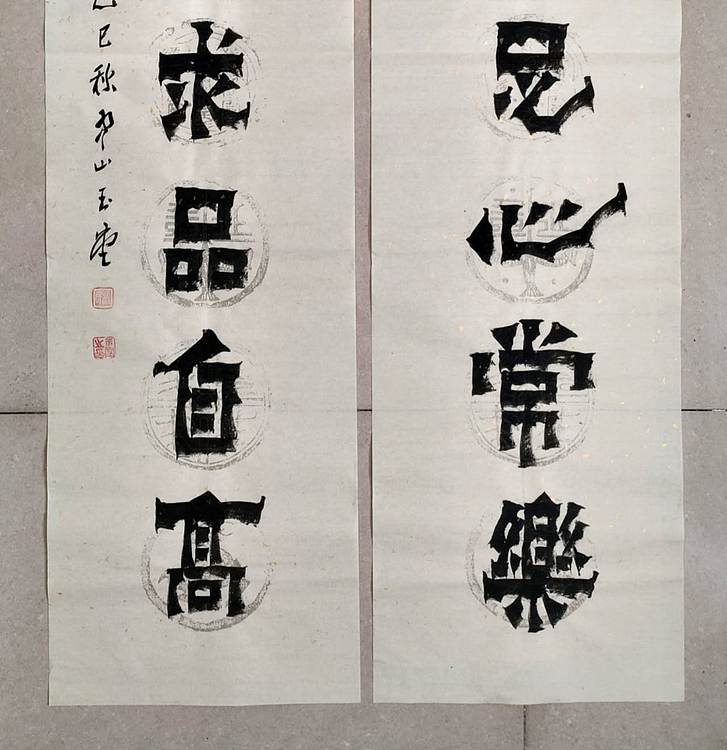 足心常樂
求品自高
巳秋山玉